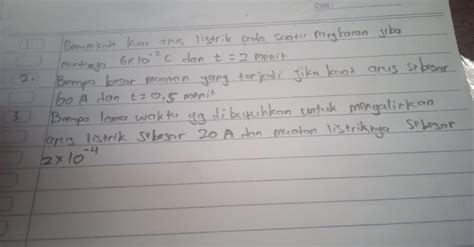 Date :
1. Berapakah kuat arus listrik pada suatu rangkaian jika
muatnaya 6x10⁻² C dan t = 2 menit
2. Berapa besar muatan yang terjadi jika kuat arus sebesar
60 A dan t = 0,5 menit
3. Berapa lama waktu yg dibutuhkan untuk mengalirkan
arus listrik sebesar 20 A dan muatan listriknya sebesar
2x10⁻⁴